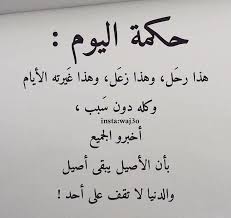 حكمة اليوم :
هذا رحَل، وهذا زعَل، وهذا غَيرته الأيام
وكله دون سَبب ،
insta:waj3o
أخبرو الجميع
بأن الأصيل يبقى أصيل
والدنيا لا تقف على أحد !